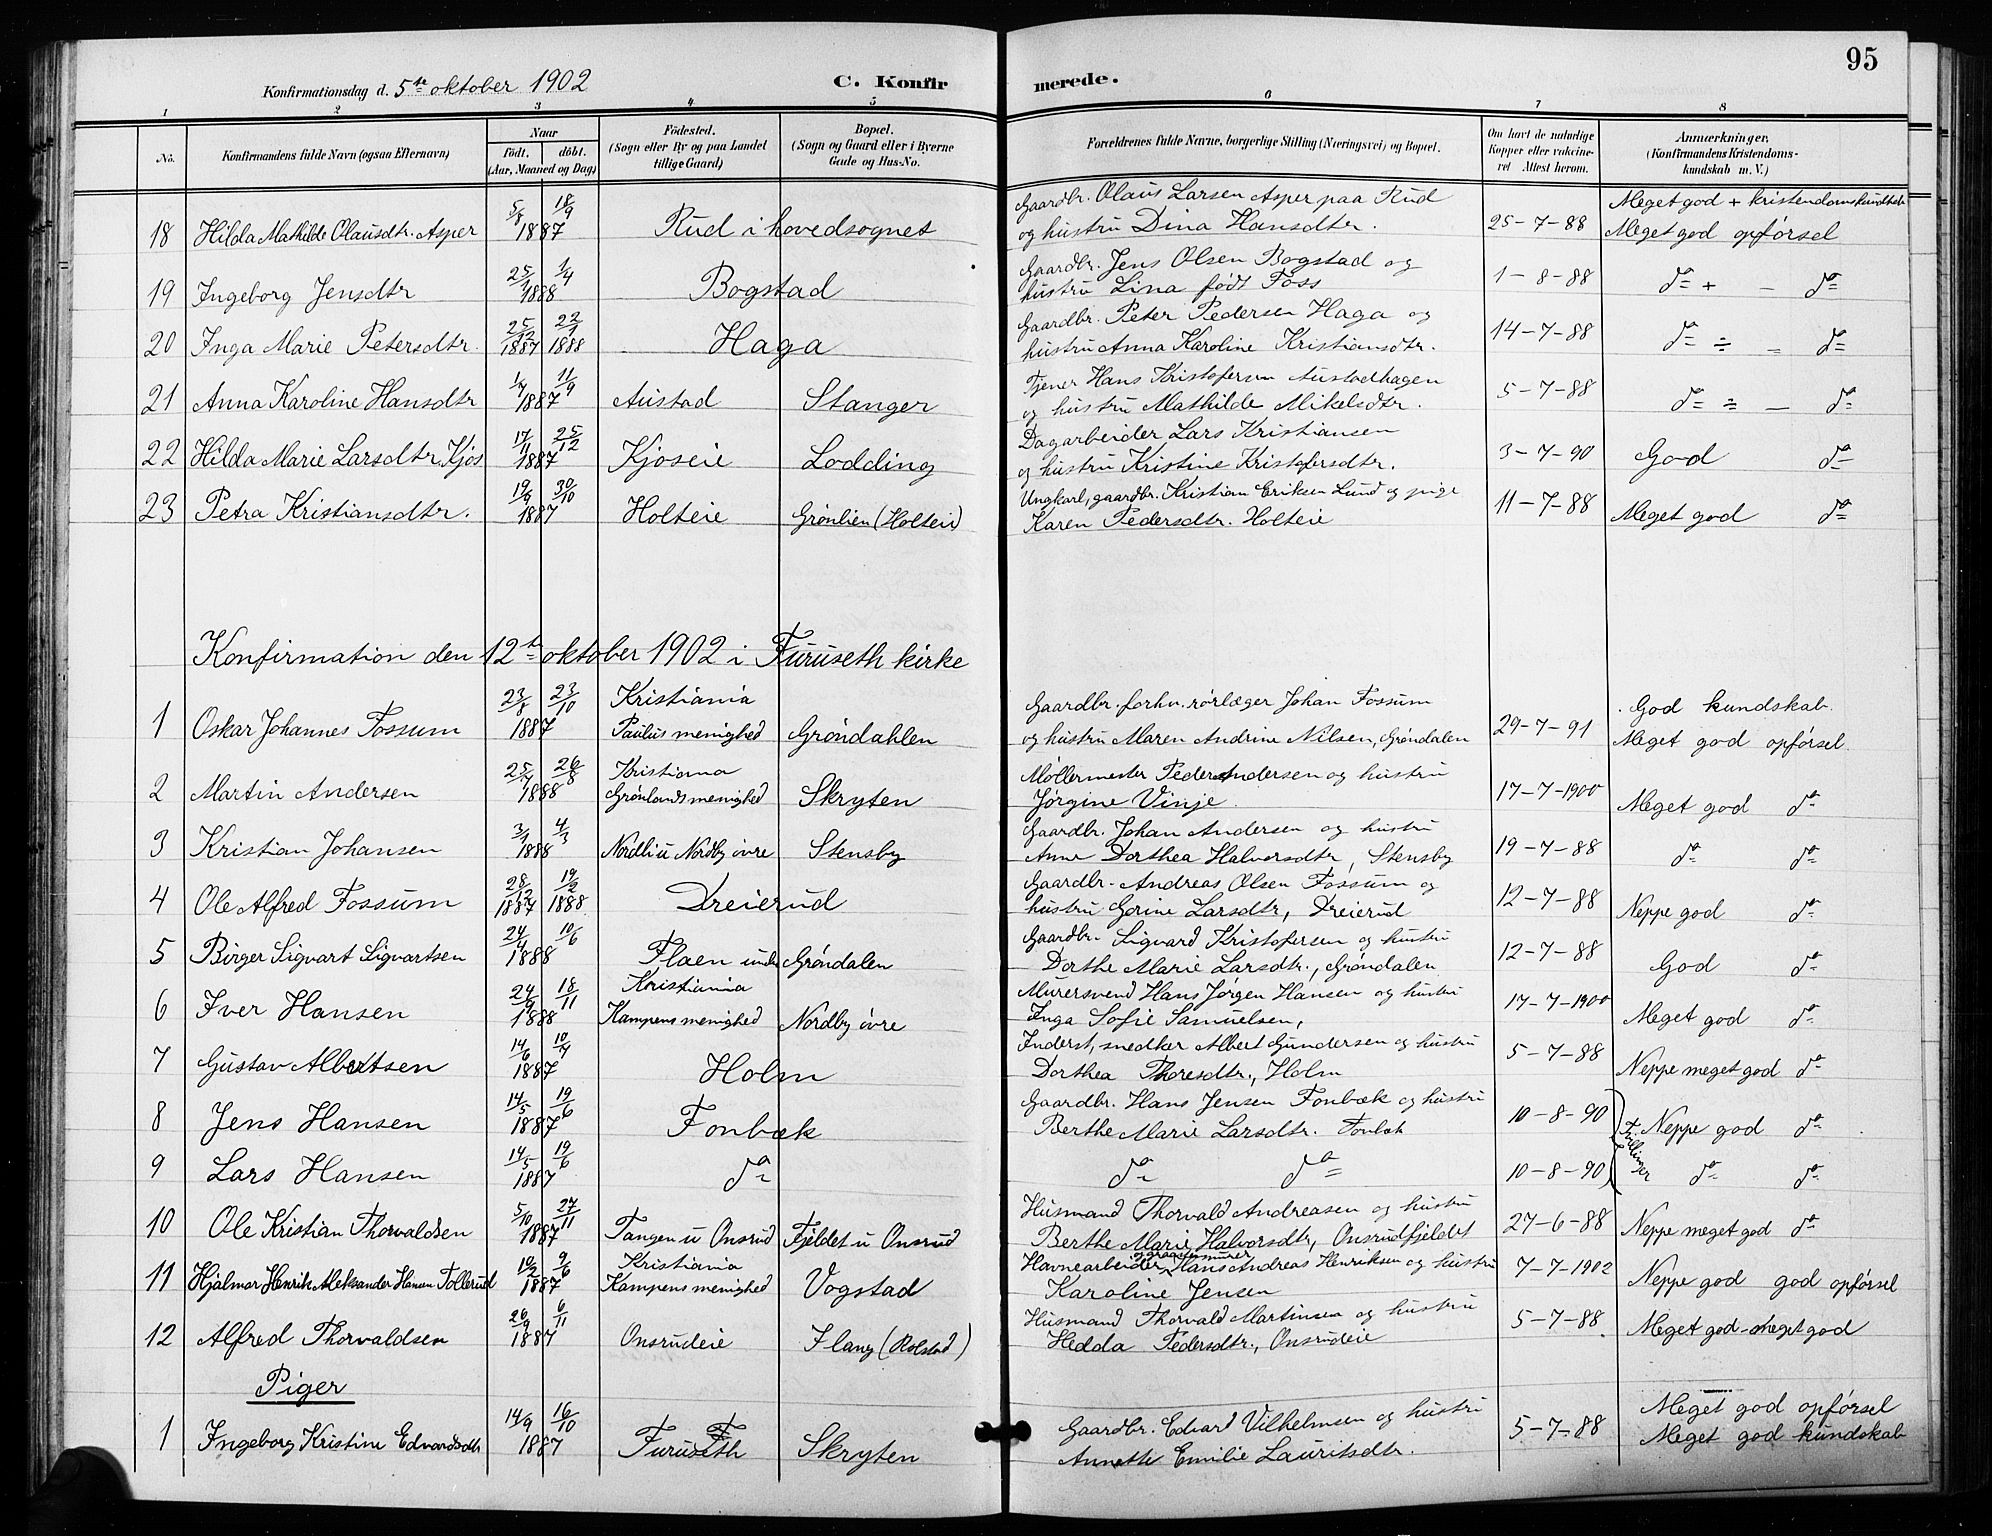 95
Konfirmationsdag d. 5te oktober 1902 C. Konfirmerede.
1 2 3 4 5 6 7 8
No. Konfirmandens fulde Navn (ogsaa Efternavn) Naar Født. døbt. (Aar, Maaned og Dag) Fødested. (Sogn eller By og paa Landet tillige Gaard) Bopæl. (Sogn og Gaard eller i Byerne Gade og Hus-No. Forældrenes fulde Navne, borgerlige Stilling (Næringsvei) og Bopæl. Om havt de naturlige Kopper eller vaccineret Attest herom. Anmærkninger. (Konfirmandens Kristendomskundskab m. V.)
18 Hilda Mathilde Olausdtr. Asper 5/8 18/9 1887 Rud i hovedsognet Gaardbr. Olaus Larsen Asper paa Rud og hustru Dina Hansdtr. 25-7-88 Meget god + kristendomskundskab Meget god opførsel
19 Ingeborg Jensdtr 25/1 1/4 1888 Bogstad Gaardbr. Jens Olsen Bogstad og hustru Lina født Foss 1-8-88 do + - do
20 Inga Marie Petersdtr. 25/12 1887 22/1 1888 Haga Gaardbr. Peter Pedersen Haga og hustru Anna Karoline Kristiansdtr. 14-7-88 do ÷ - do
21 Anna Karoline Hansdtr 1/7 11/9 1887 Austad Stanger Tjener Hans Kristofersen Austadhagen og hustru Mathilde Mikelsdtr. 5-7-88 do ÷ - do
22 Hilda Marie Larsdtr. Kjos 17/11 25/12 1887 Kjoseie Lodding Dagarbeider Lars Kristiansen og hustru Kristine Kristofersdtr. 3-7-90 God do
23 Petra Kristiansdtr. 19/9 30/10 1887 Holteie Grønlien (Holteie) Ungkarl, gaardbr. Kristian Eriksen Lund og pige Karen Pedersdtr. Holteie 11-7-88 Meget god do
Konfirmation den 12te oktober 1902 i Furuseth kirke
1 Oskar Johannes Fossum 23/8 23/10 1887 Kristiania Paulus menighed Grøndahlen Gaardbr. forhv. rørlæger Johan Fossum og hustru Maren Andrine Nilsen, Grøndalen 29-7-91 God kundskab. Meget god opførsel.
2 Martin Andersen 25/7 26/8 1888 Kristiania Grønlands menighed Skryten Møllermester Peder Andersen og hustru Jørgine Vinje. 17-7-1900 Meget god do
3 Kristian Johansen 3/1 4/3 1888 Nordli u Nordby øvre Stensby Gaardbr. Johan Andersen og hustru Anne Dorthea Halvorsdtr, Stensby 19-7-88 do do
4 Ole Alfred Fossum 28/12 1887 19/2 1888 Dreierud Gaardbr. Andreas Olsen Fossum og hustru Gorine Larsdtr, Dreierud 12-7-88 Neppe god do
5 Birger Sigvart Sigvartsen 24/4 10/6 1888 Flaen under Grøndalen Gaardbr. Sigvard Kristofersen og hustru Dorthe Marie Larsdtr., Grøndalen 12-7-88 God do
6 Iver Hansen 24/9 18/11 1888 Kristiania Kampens menighed Nordby øvre Murersvend Hans Jørgen Hansen og hustru Inga Sofie Samuelsen, 17-7-1900 Meget god do
7 Gustav Albertsen 14/6 10/7 1887 Holm Inderst, snedker Albert Gundersen og hustru Dorthea Thoresdtr., Holm 5-7-88 Neppe meget god do
8 Jens Hansen 14/5 19/6 1887 Fonbæk Gaardbr. Hans Jensen Fonbæk og hustru Berthe Marie Larsdtr. Fonbæk 10-8-90 tvillinger Neppe god do
9 Lars Hansen 14/5 19/6 1887 do do do 10-8-90 do do
10 Ole Kristian Thorvaldsen 5/10 27/11 1887 Tangen u Onsrud Fjeldet u Onsrud Husmand Thorvald Andreasen og hustru Berthe Marie Halvorsdtr, Onsrudfjeldet 27-6-88 Neppe meget god do
11 Hjalmar Henrik Aleksander Hansen Tollerud 10/2 9/6 1887 Kristiania Kampens menighed Vogstad Havnearbeider Hans Andreas Henriksen og hustru Karoline Jensen 7-7-1902 Neppe god god opførsel
12 Alfred Thorvaldsen 26/9 6/11 1887 Onsrudeie Flang (Rolstad) Husmand Thorvald Martinsen og hustru Hedda Pedersdtr., Onsrudeie 5-7-88 Meget god - Meget god
Piger
1 Ingeborg Kristine Edvardsdtr 14/9 16/10 1887 Furuseth Skryten Gaardbr. Edvard Vilhelmsen og hustru Annette Emilie Lauritsdtr. 5-7-88 Meget god opførsel Meget god kundskab